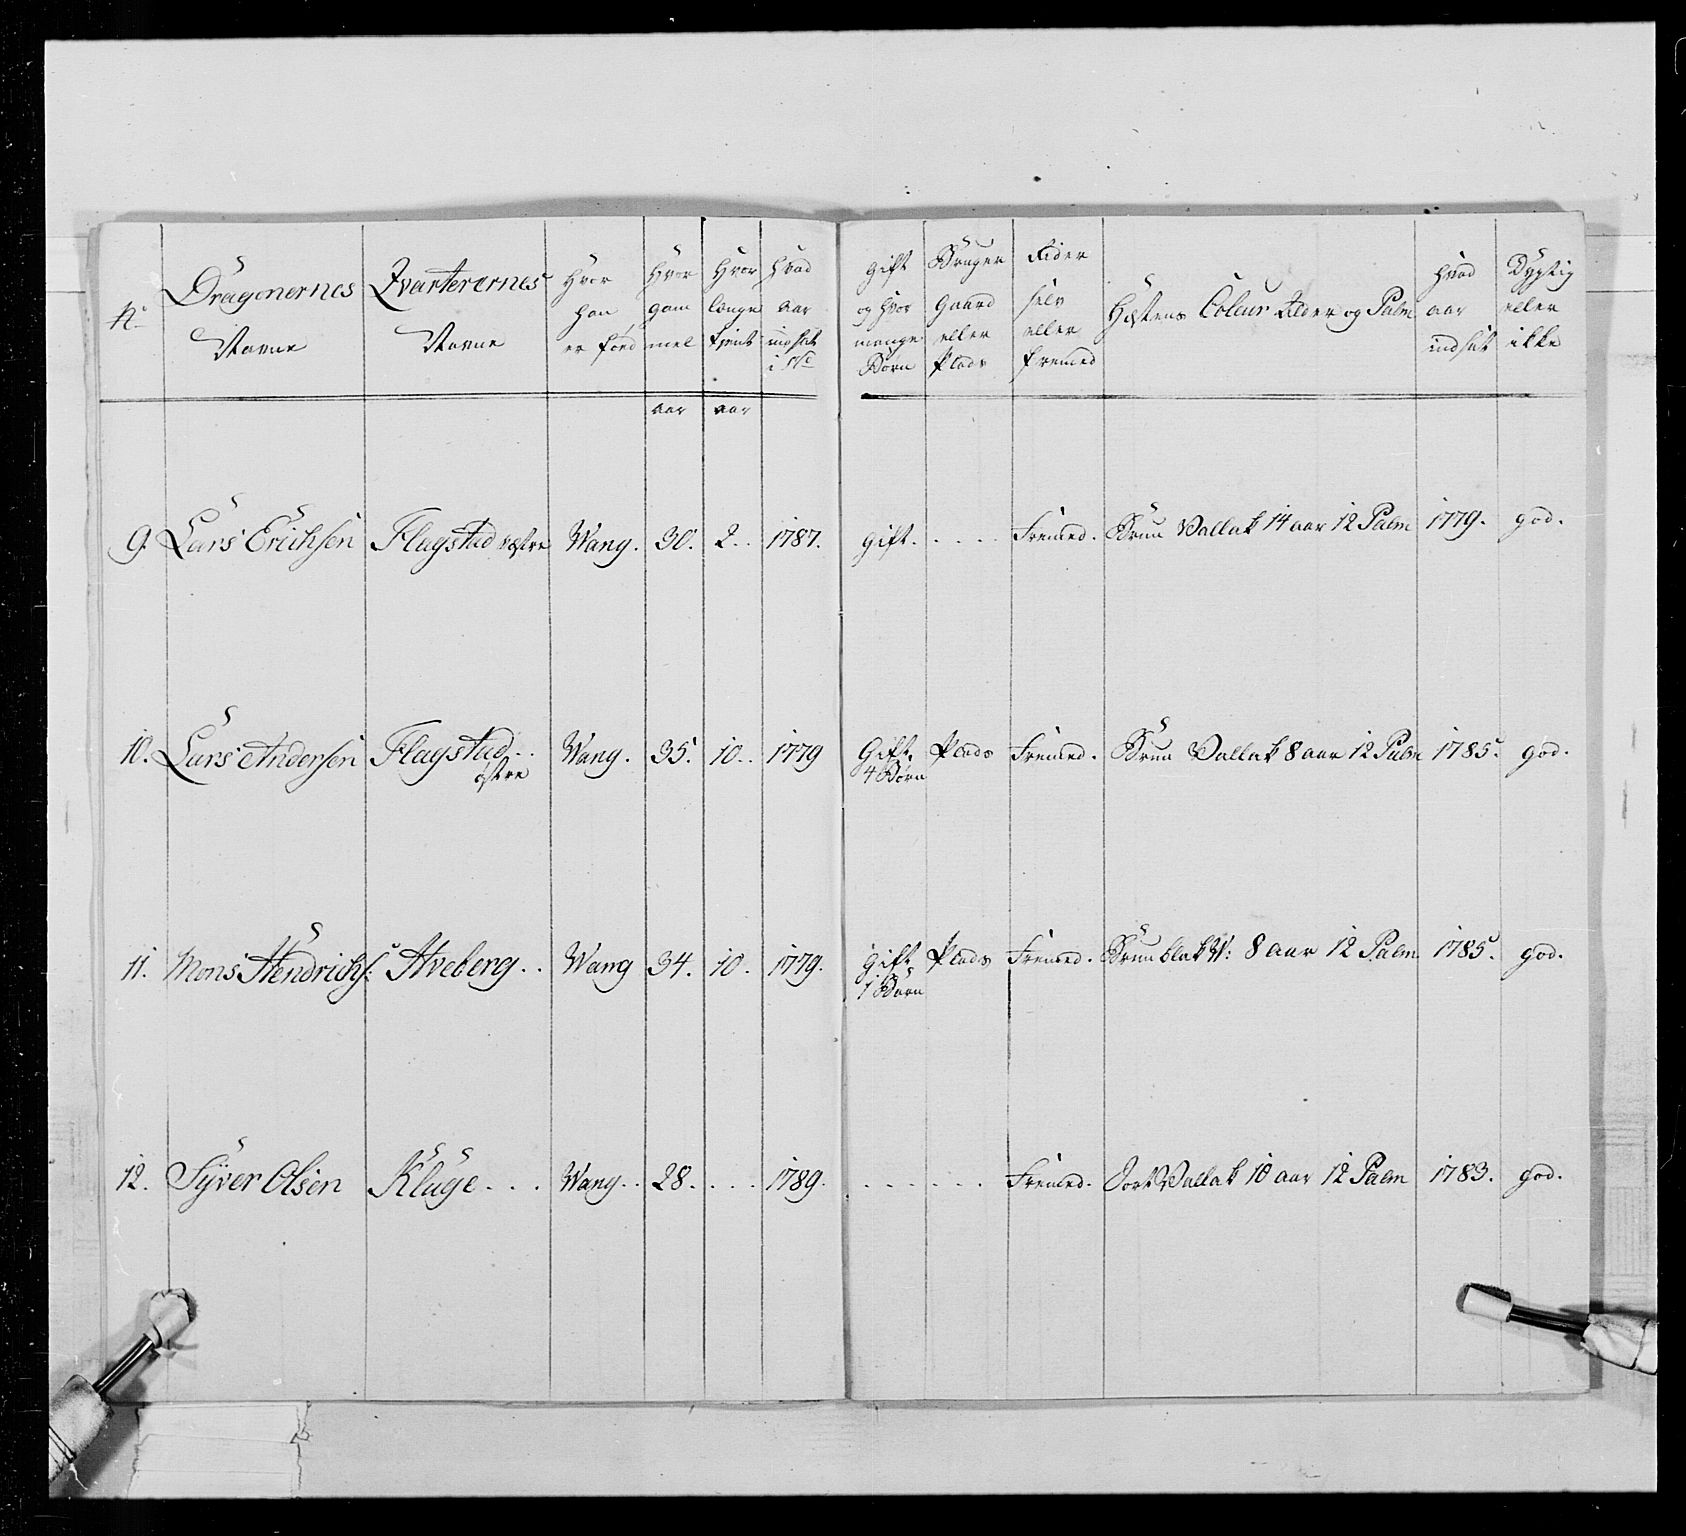 No
Dragonernes Navne
Qvarterernes Navne
Hvor han er föed
Hvor gammel
Hvor længe tient
Hvad aar indsat i No
gift og hvor mange Børn
Bruger Gaard eller Plads
Rider selv eller fremed
Hæstens Coleur Alder og Palm
hvad aar indsat
Dygtig eller ikke
aar aar
9. Lars Erichsen Flagstad vestre Wang. 30. 2.. 1787. gift. .... Fremed. Brun Vallak 14 aar 12 Palm 1779. god.
10. Lars Andersen Flagstad.. Wang. 35. 10.. 1779 Gift. Plads Fremed. Brun Vallak 8 aar 12 Palm 1785. god.
østre 4 Børn
11. Mons Hendrichs: Aveberg.. Wang 34. 10. 1779. gift Plads Fremed. Brunblak W: 8 aar 12 Palm 1785. god.
1 Barn
12. Syver Olsen Kluge... Wang.. 28. ... 1789. ...... Fremed. Sort Vallak 10 aar 12 Palm 1783. god.